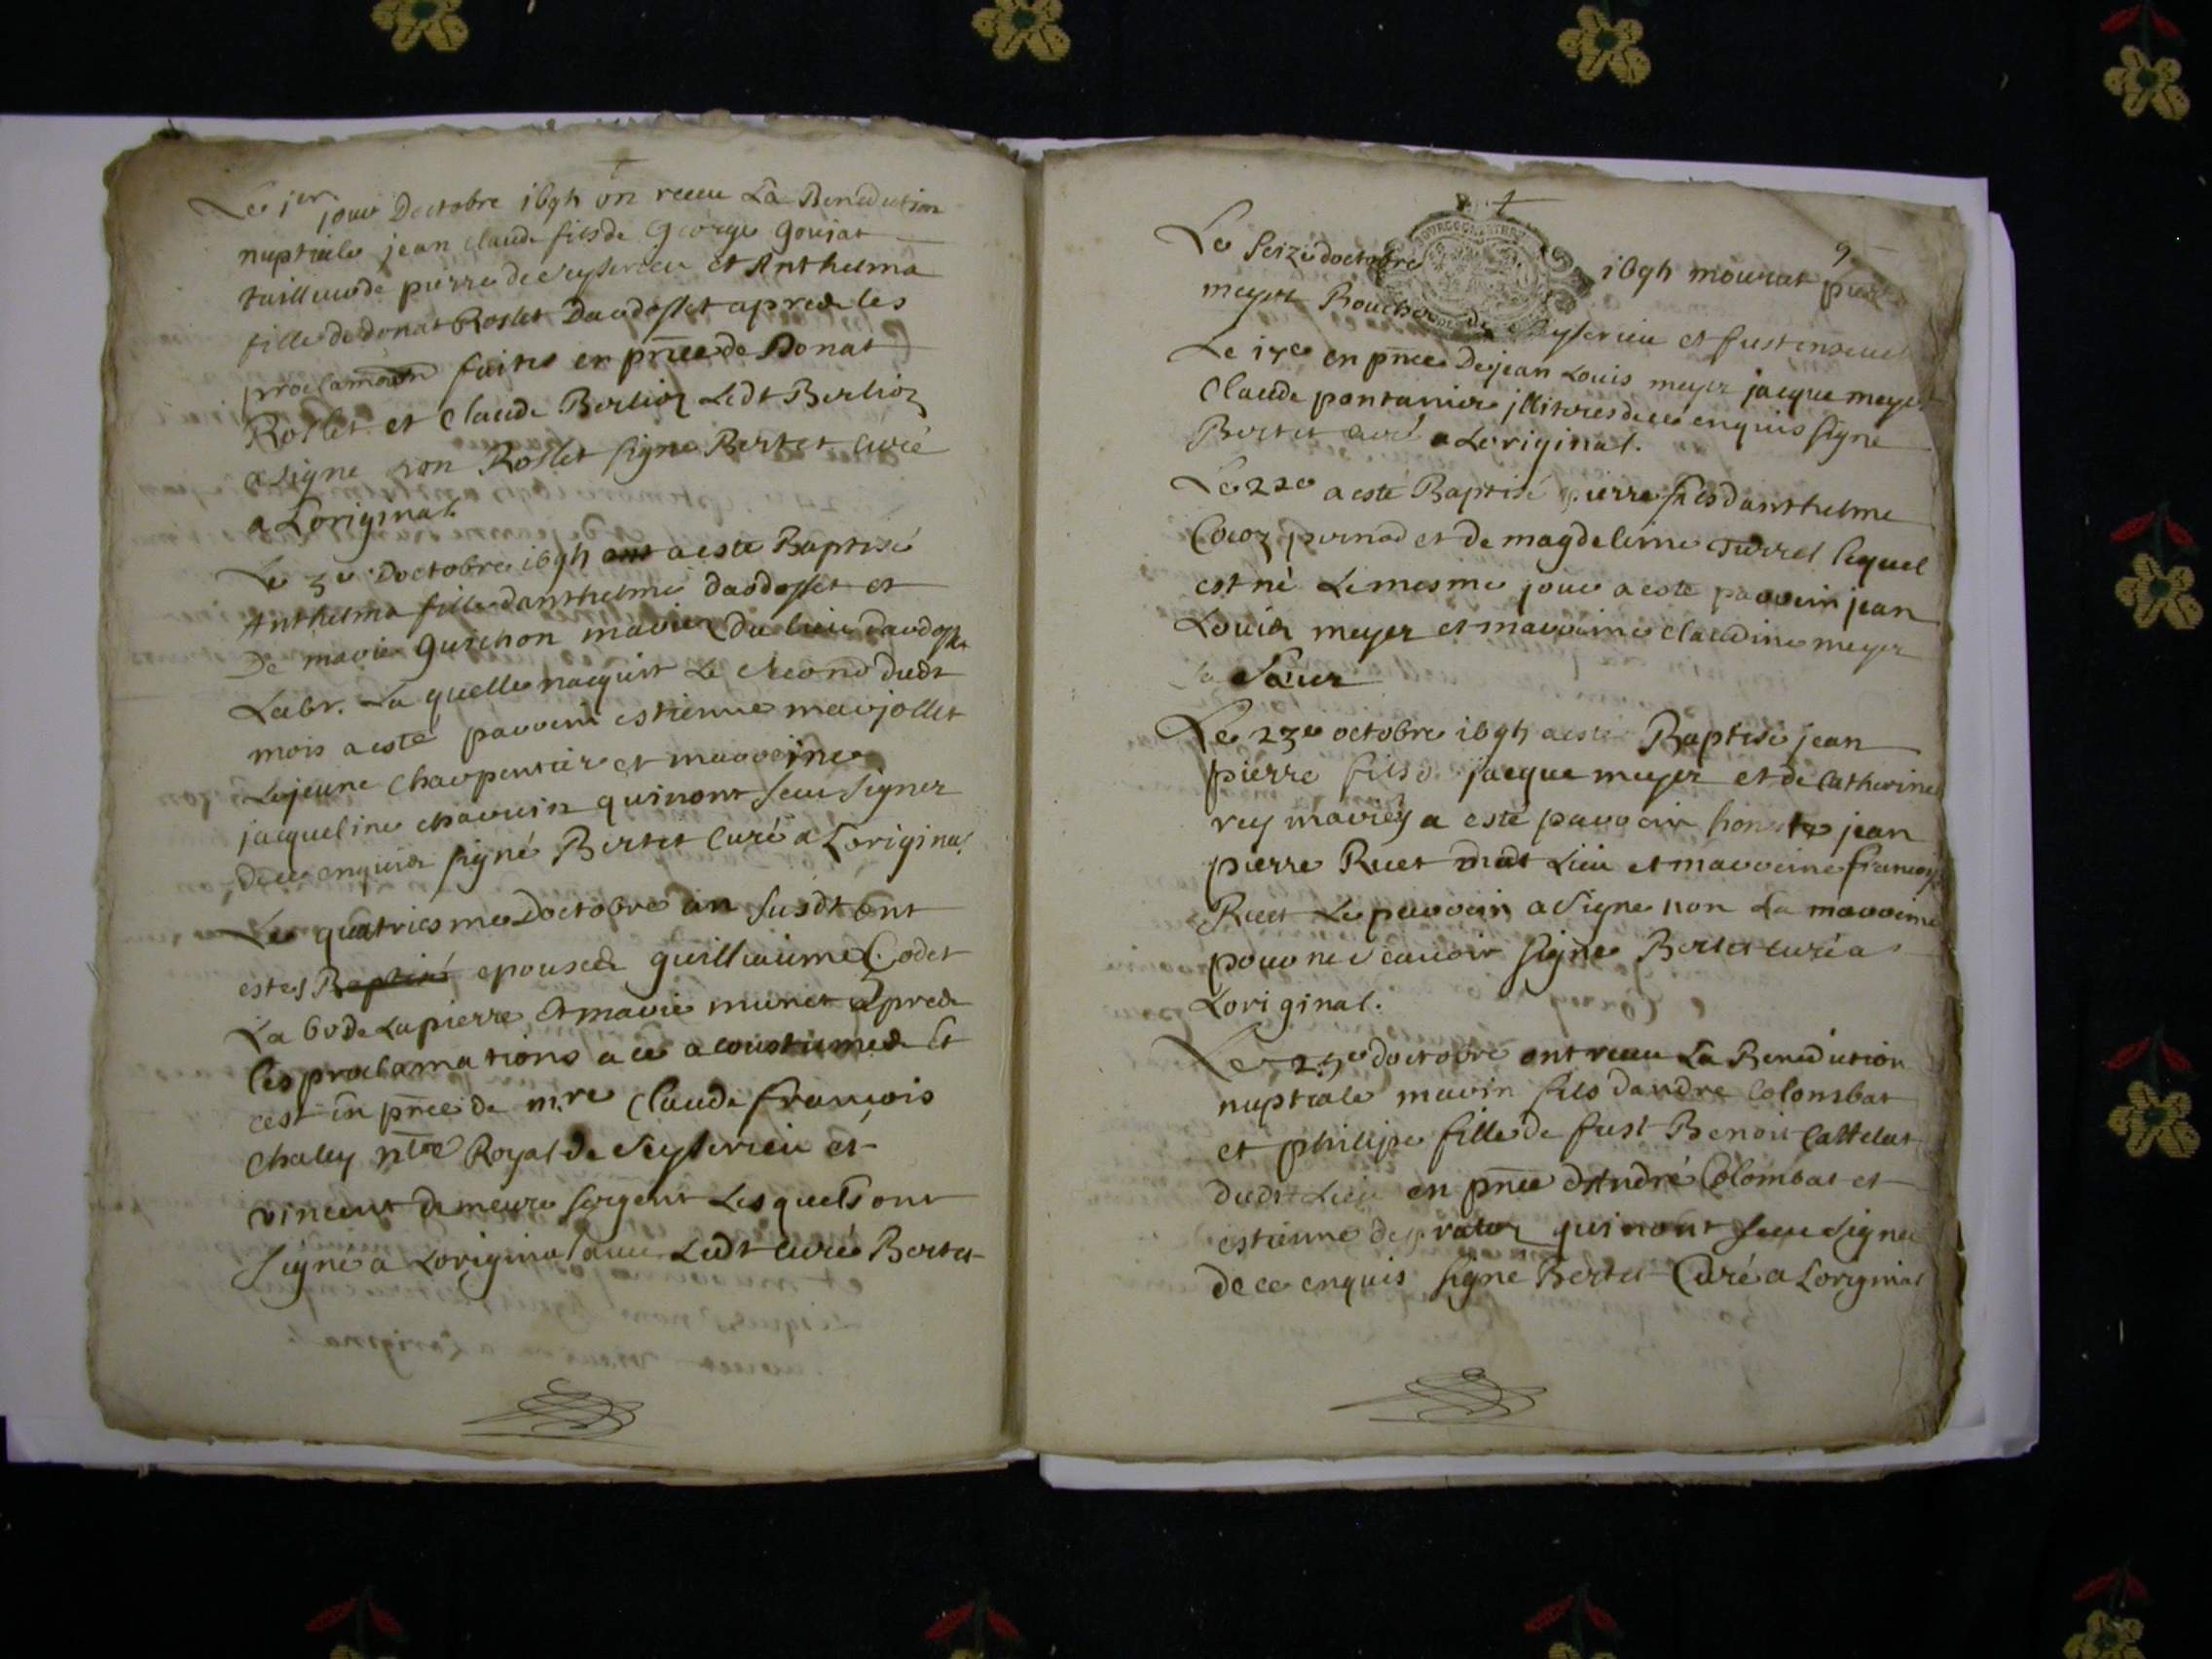 Le jer jour Doctobre 1694 on receu La Benediction
nuptiale jean claude fils de George goujat
tailleur de pierre de Seyserieu et Anthelma
fille de donat Roslet Dardosset apred les
proclamaon faites en pñce de Donat
Roslet et Claude Berlioz Ledt Berlioz
a signe non Roslet signe Bertet curé
a Loriginal.
Le 3e Doctobre 1694 a esté Baptisé
Anthelma fille danthelme dardosset et
De marie Guichon mariez du lieu dardosset
Labr. La quelle naquit Le second dudt
mois a esté parrein estienne marjollet
Lejeune charpentier et marreine
jacqueline charvin qui nont sceu signer
de ce enquis signé Bertet Curé a Loriginal
Le quatriesme Doctobre an susdt ont
estes Baptisé epoused guilliaume Codet
La br de Lapierre et marie munet apred
les proclamations a ce acoustumed et
cest en pñce de m.re Claude françois
Chaley ntre Royal de Seyserieu et
vincent demeure sergent Lesquels ont
signe a Loriginal avec Ledt curé Bertet
9
Le Seize doctobre 1694 mourut
meyer Boucher de Seyserieu et fust enseveli
Le 17e en pñce De jean Louis meyer jacque meyer
Claude pontanier illiteres de ce enquis signe
Bertet curé a Loriginal.
Le 22e a esté Baptisé pierre fils danthelme
Cocoz et de magdeleine lequel
est né Le mesme jour a este parrein jean
Louis meyer et marreine claudine meyer
sa Sœur
Le 23e octobre 1694 a esté Baptisé jean
pierre fils d jacque meyer et de Catherine
rey mariés a esté parrein honeste jean
pierre Ruet dudt Lieu et marreine françoyse
Ruet Le parrein a signe non La marreine
pour ne scavoir signe Bertet curé a
Loriginal.
Le 25e doctobre ont receu La Benediction
nuptiale marin fils dandre Colombat
et philipe fille de fust Benoit Cattelat
dudt Lieu en pñce dAndré Colombat et
estienne qui nont sceu signer
de ce enquis signe Bertet Curé a Loriginal